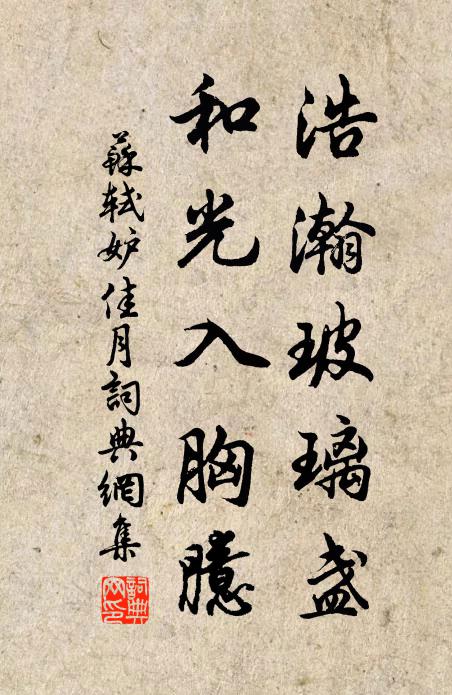 浩瀚玻璃盏
和光入胸臆
蘇轼妒佳月詞典網集
詞典网印